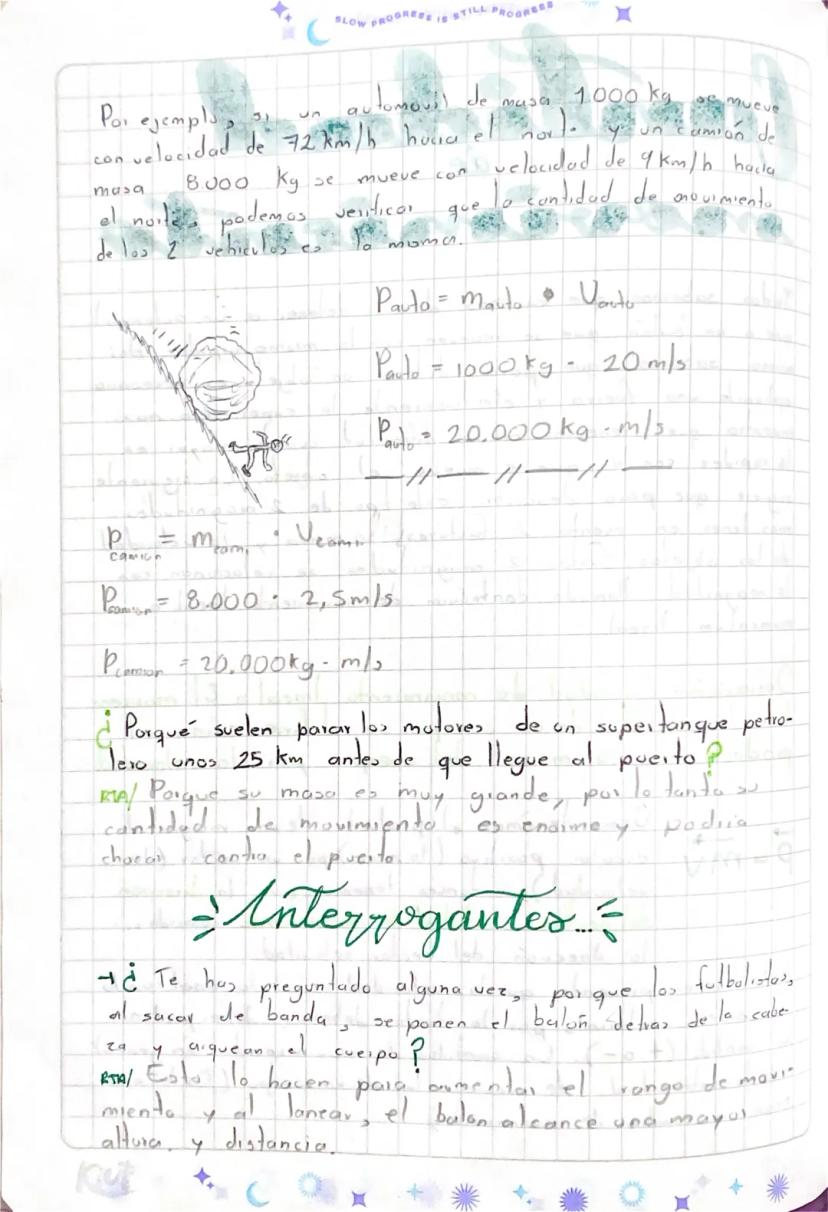 SLOW PROGRESS IS STILL PROGRESS
Por ejemplo, si un automovil de masa 1.000 kg se mueve
con velocidad de 72 km/h hacia el norte y un camión de
masa 8.000 Kg se mueve con velocidad de 9 km/h hacia
el norte, podemos verificar que la cantidad de movimiento
de los 2 vehiculos es la misma.
Pauto = mauto • Vauto
Pauto = 1000 kg - 20 m/s
Pauto = 20.000 kg - m/s
Pcamion = mcami · Vcami
Pcamion = 8.000 · 2,5m/s
Pcamion = 20.000kg - m/s
¿Porqué suelen parar los motores de un supertanque petro-
lero unos 25 km antes de que llegue al puerto?
RTA/ Porque su masa es muy grande, por lo tanto su
cantidad de movimiento es enorme y podria
chocar contra el puerto
Interrogantes...
→¿ Te has preguntado alguna vez, por que los futbolistas,
al sacar de banda, se ponen el balon detras de la cabe-
za y arquean el cuerpo?
RTA/ Esto lo hacen para aumentar el rango de movi-
miento y al lanzar, el balon alcance una mayor
altura y distancia.